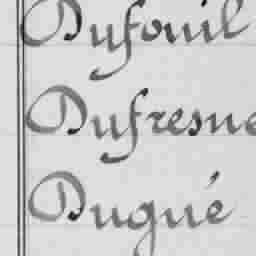 Dufouil
Dufresne
Dugué